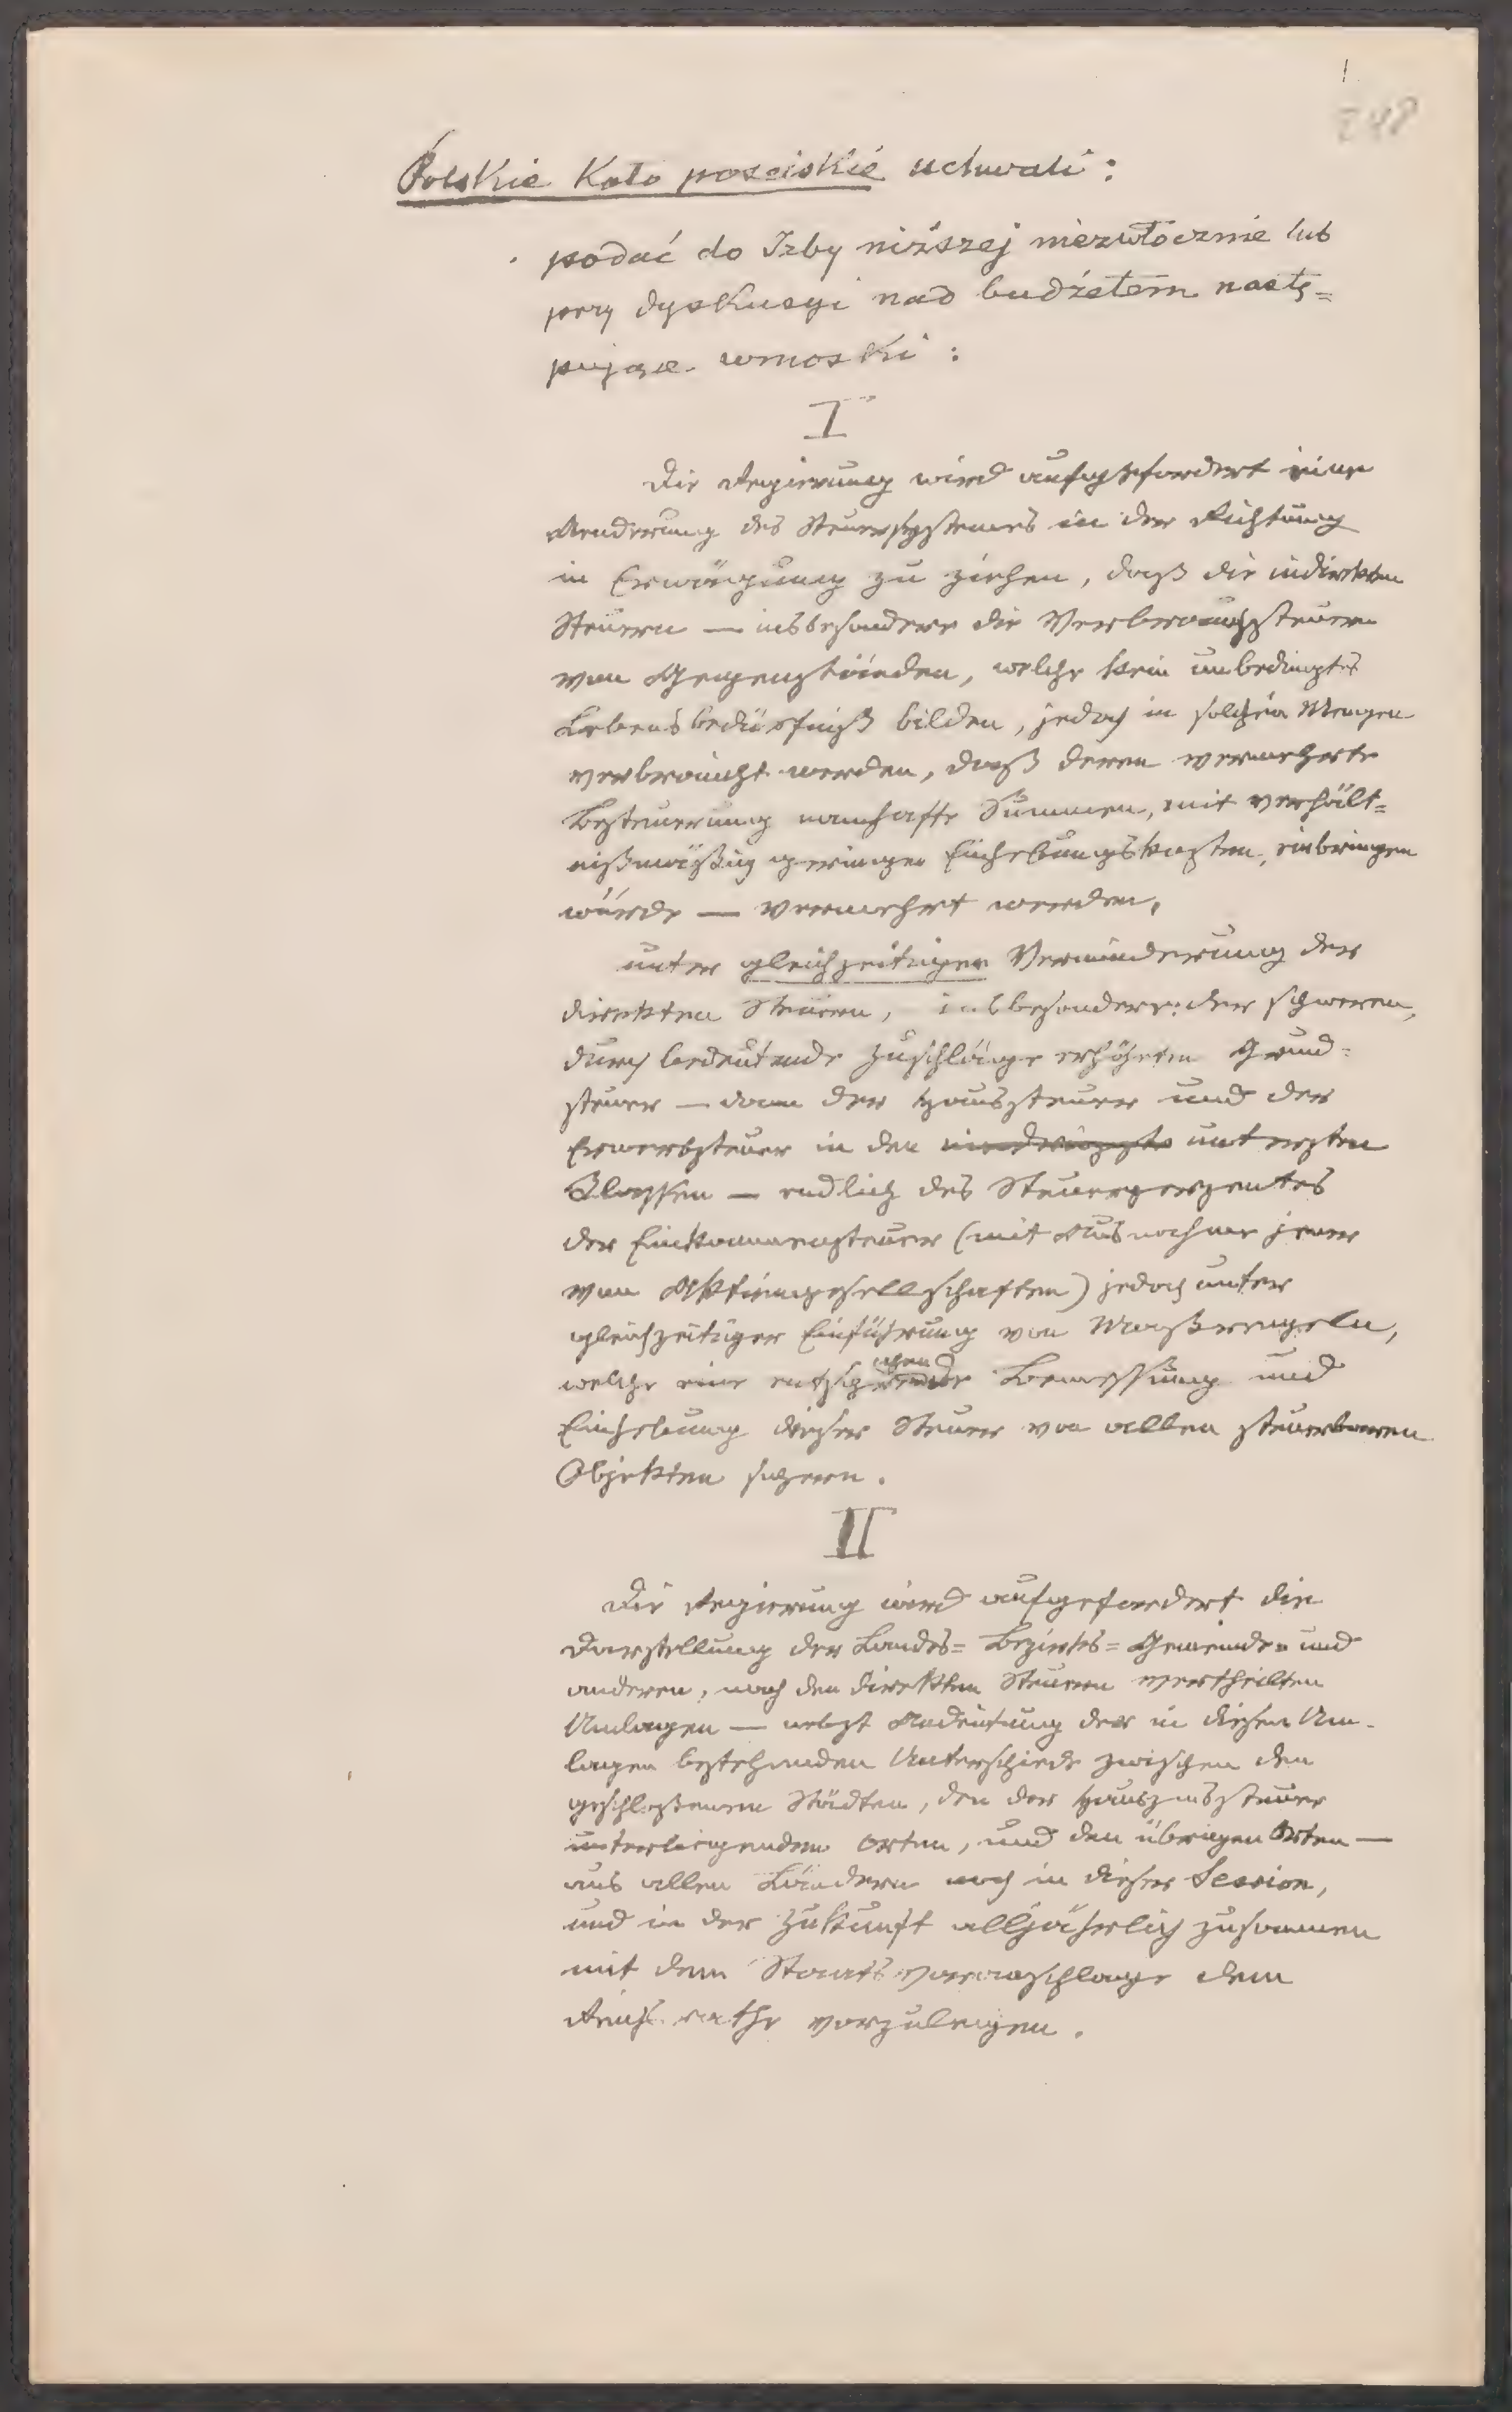 248
Polskie Koło poselskie uchwali:
podać do Izby niższej niezwłocznie lub
przy dyskusyi nad budżetem nastę=
pujące wnioski:
I
Die Regierung wird aufgefordert eine
Aenderung des Steuersystemes in der Richtung
in Erwägung zu ziehen, daß die indirekten
Steuern — insbesondere die Verbrauchssteuern
von Gegenständen, welche kein unbedingtes
Lebensbedürfniß bilden, jedoch in solchen Mengen
verbraucht werden, daß deren vermehrte
Besteuerung namhafte Summen, mit verhält=
nißmäßig geringen Einhebungskosten, einbringen
würde — vermehrt werden,
unter gleichzeitiger Verminderung der
direkten Steuern, insbesondere: der schweren,
durch bedeutende Zuschläge erhöhten Grund=
steuer — dann der Haussteuer und der
Erwerbsteuer in den untersten
Klassen — endlich des Steuerperzentes
der Einkommensteuer (mit Ausnahme jener
von Aktiengesellschaften) jedoch unter
gleichzeitiger Einführung von Maßregeln,
welche eine Bemessung und
Einhebung dieser Steuer von allen steuerbaren
Objekten sichern.
II
Die Regierung wird aufgefordert die
Darstellung der Landes= Bezirks= Gemeinde= und
anderen, nach den direkten Steuern vertheilten
Umlagen — nebst Andeutung der in diesen Um-
lagen bestehenden Unterschiede zwischen den
geschloßenen Städten, den der Hauszinssteuer
unterliegenden Orten, und den übrigen Orten —
aus allen Ländern noch in dieser Session,
und in der Zukunft alljährlich zusammen
mit dem Staatsvoranschlage dem
Reichsrathe vorzulegen.